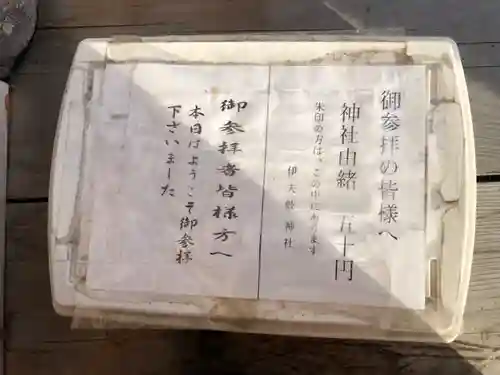 御参拝の皆様へ
神社由緒 五十円
朱印の方は、この中にあります
伊夫岐神社
御参拝者皆様方へ
本日はようこそ御参拝
下さいました